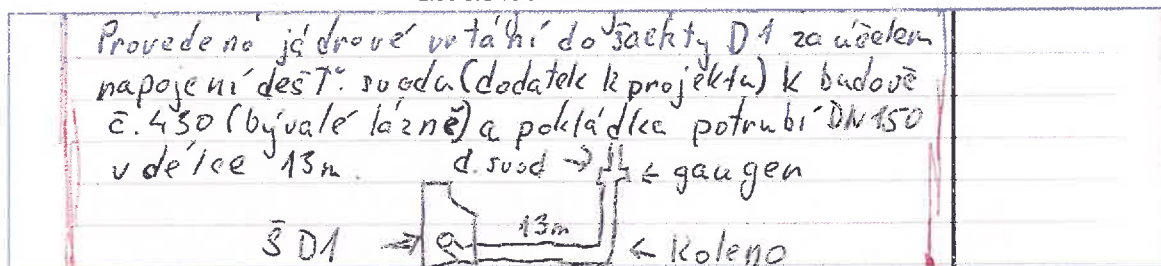 Provedeno jádrové vrtání do šachty D1 za účelem
napojení dešť. svodu (dodatek k projektu) k budově
č. 430 (bývalé lázně) a pokládka potrubí DN 150
v délce 13m. d. svod → ← gaugen
13m
Š D1 → ← Koleno